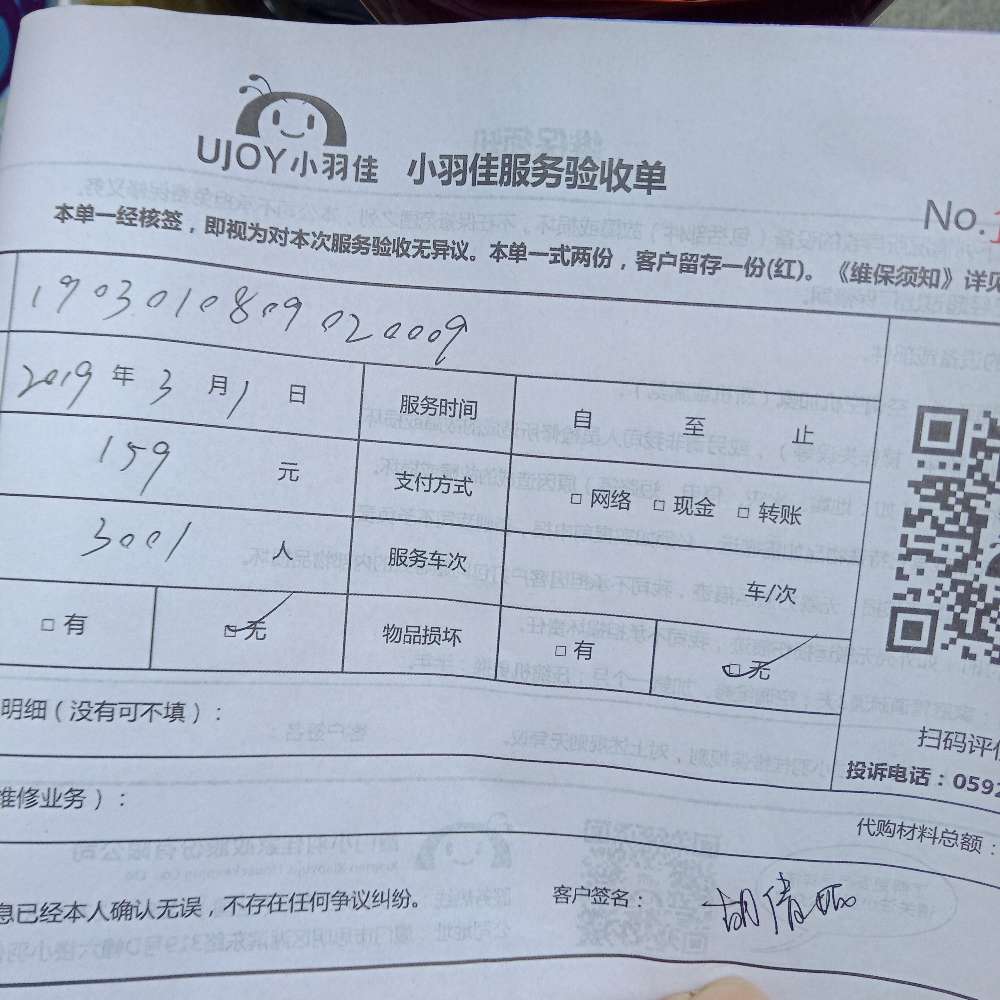 UJOY小羽佳 小羽佳服务验收单
No.
本单一经核签，即视为对本次服务验收无异议。本单一式两份，客户留存一份(红)。《维保须知》详见
1903010809020009
2019年3月1日 服务时间 自 至 止
159元 支付方式 □网络 □现金 □转账
3001人 服务车次 车/次
□有 □无 物品损坏 □有 □无
明细（没有可不填）：
扫码评价
投诉电话：0592
维修业务）：
代购材料总额：
息已经本人确认无误，不存在任何争议纠纷。 客户签名：胡倩